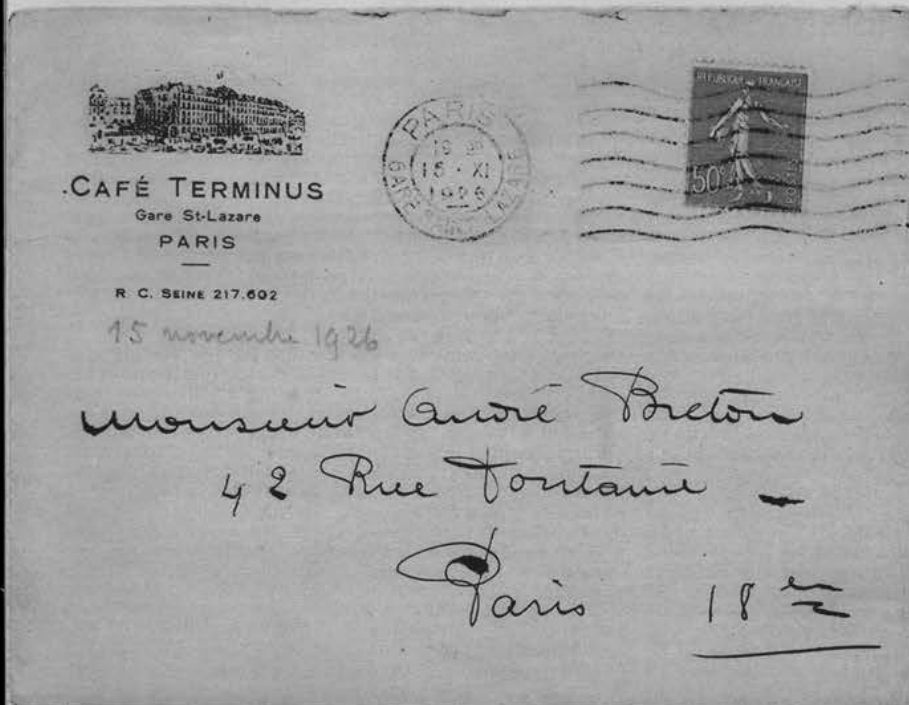 CAFÉ TERMINUS
Gare St-Lazare
PARIS
R. C. SEINE 217.602
PARIS
19 30
15 · XI
1926
GARE SAINT-LAZARE
RÉPUBLIQUE FRANÇAISE
50c
15 novembre 1926
Monsieur André Breton
42 Rue Fontaine
Paris 18e